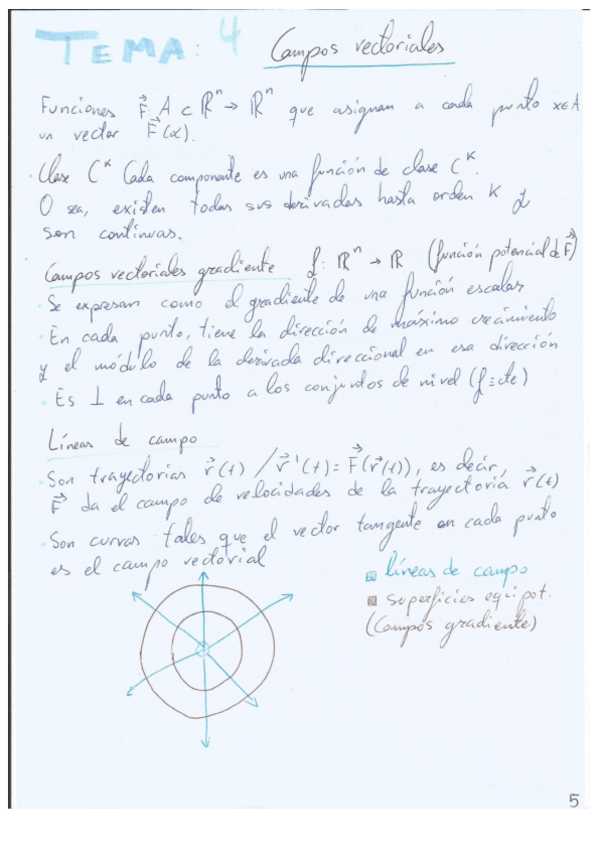 TEMA: 4 Campos vectoriales
Funciones F⃗: A ⊂ ℝⁿ → ℝⁿ que asignan a cada punto x∈A
un vector F⃗(x).
· Clase Cᴷ Cada componente es una función de clase Cᴷ.
O sea, existen todas sus derivadas hasta orden K y
son continuas.
Campos vectoriales gradiente f: ℝⁿ → ℝ (función potencial de F⃗)
· Se expresan como el gradiente de una función escalar
· En cada punto, tiene la dirección de máximo crecimiento
y el módulo de la derivada direccional en esa dirección
· Es ⊥ en cada punto a los conjuntos de nivel (f = cte)
Líneas de campo
· Son trayectorias r⃗(t) / r⃗'(t) = F⃗(r⃗(t)), es decir,
F⃗ da el campo de velocidades de la trayectoria r⃗(t)
· Son curvas tales que el vector tangente en cada punto
es el campo vectorial
líneas de campo
superficies equipot.
(Campos gradiente)
5